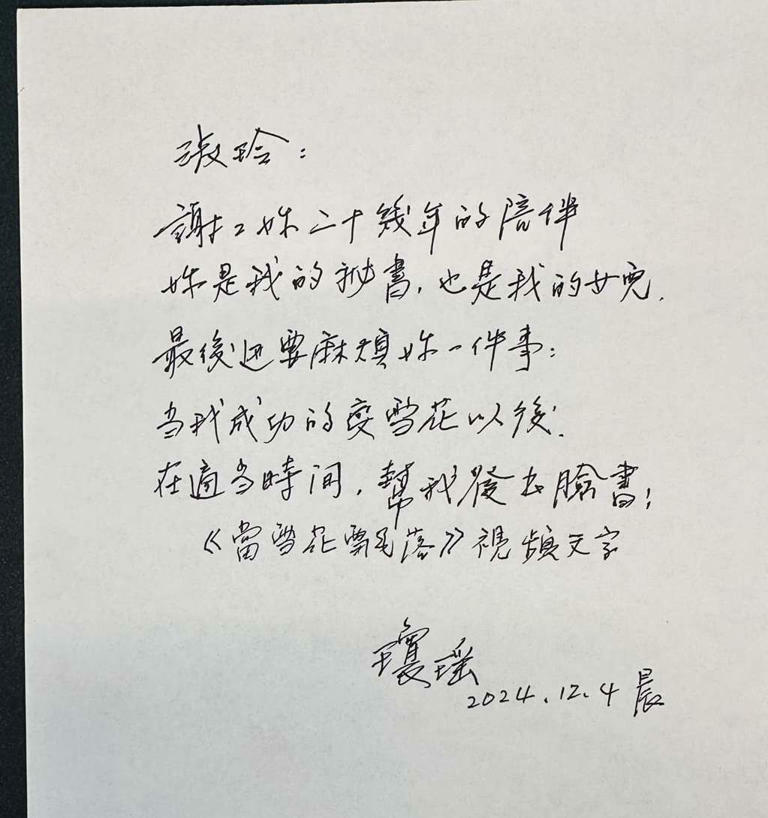 淑玲：
謝々妳二十幾年的陪伴
妳是我的秘書，也是我的女兒。
最後还要麻煩妳一件事：
当我成功的变雪花以後。
在適当時间，幫我發出臉書；
《當雪花飄落》視頻文字
瓊瑤
2024.12.4 晨